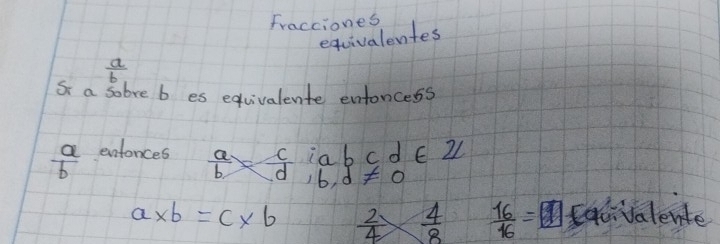 Fracciones
equivalentes
a/b
Si a sobre b es equivalente entoncess
a/b entonces a/b = c/d ; a b c d ∈ Z
; b, d ≠ 0
a x b = c x b 2/4 4/8 16/16 = 1 Equivalente